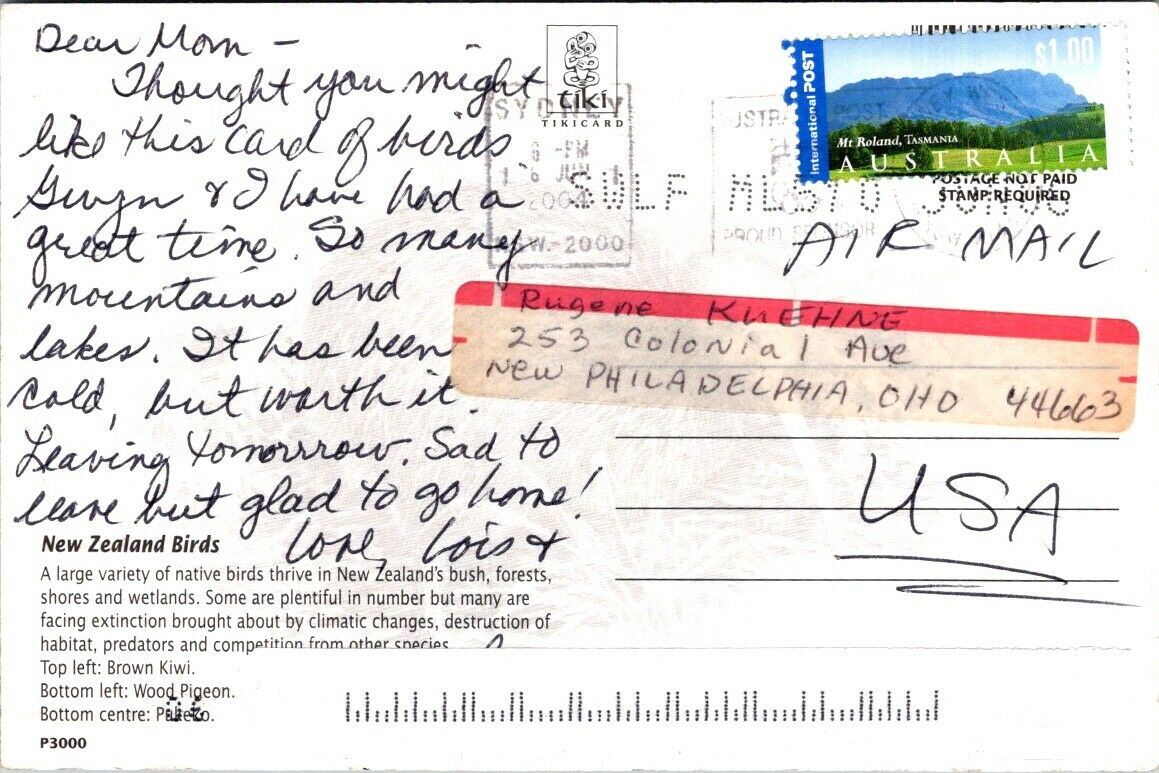 Dear Mom -
Thought you might
like this card of birds
Gwyn & I have had a
great time. So many
mountains and
lakes. It has been
cold, but worth it.
Leaving tomorrow. Sad to
leave but glad to go home!
Love, Lois &
New Zealand Birds
A large variety of native birds thrive in New Zealand's bush, forests,
shores and wetlands. Some are plentiful in number but many are
facing extinction brought about by climatic changes, destruction of
habitat, predators and competition from other species.
Top left: Brown Kiwi.
Bottom left: Wood Pigeon.
Bottom centre: Pukeko.
P3000
tiki
TIKICARD
SYDNEY
6 -PM
JUN
2004
NSW.-2000
PROUD
International POST
$1.00
Mt Roland, TASMANIA
AUSTRALIA
POSTAGE NOT PAID
STAMP REQUIRED
SWLF
AIR MAIL
Rugene KUEHNE
253 Colonial Ave
New PHILADELPHIA, OHO 44663
USA